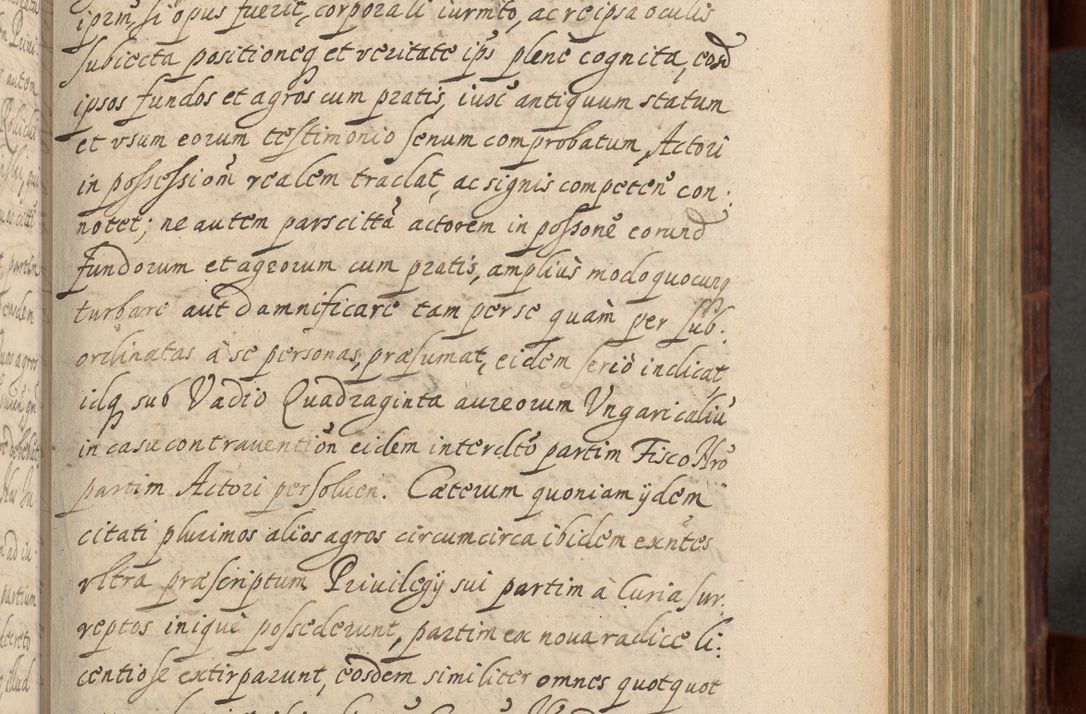 ipsm, si opus fuerit, corporali iurmto, ac reipsa oculis
subiecta positioneq et veritate ips plenè cognita, eosd
ipsos fundos et agros cum pratis, iuxč antiquum statum
et vsum eorum testimonio senum comprobatum, Actori
in possessiom realem tradat, ac signis competen con:
notet; ne autem pars citta actorem in possone eorund
fundorum et agrorum cum pratis, ampliùs modo quocunq
turbare aut damnificare tam per se quàm per sub:
ordinatas à se personas, præsumat, eidem seriò indicat,
idq sub Vadio Quadraginta aureorum Vngaricaliū
in casu contrauention eidem interdto partim Fisco Nro
partim Actori persoluen. Cæterum quoniam ijdem
citati plurimos alios agros circumcirca ibidem exntes
vltra præscriptum Priuilegij sui partim à Curia sur:
reptos iniquè possederunt, partim ex noua radice li:
centiose extirparunt, eosdem similiter omnes quotquot